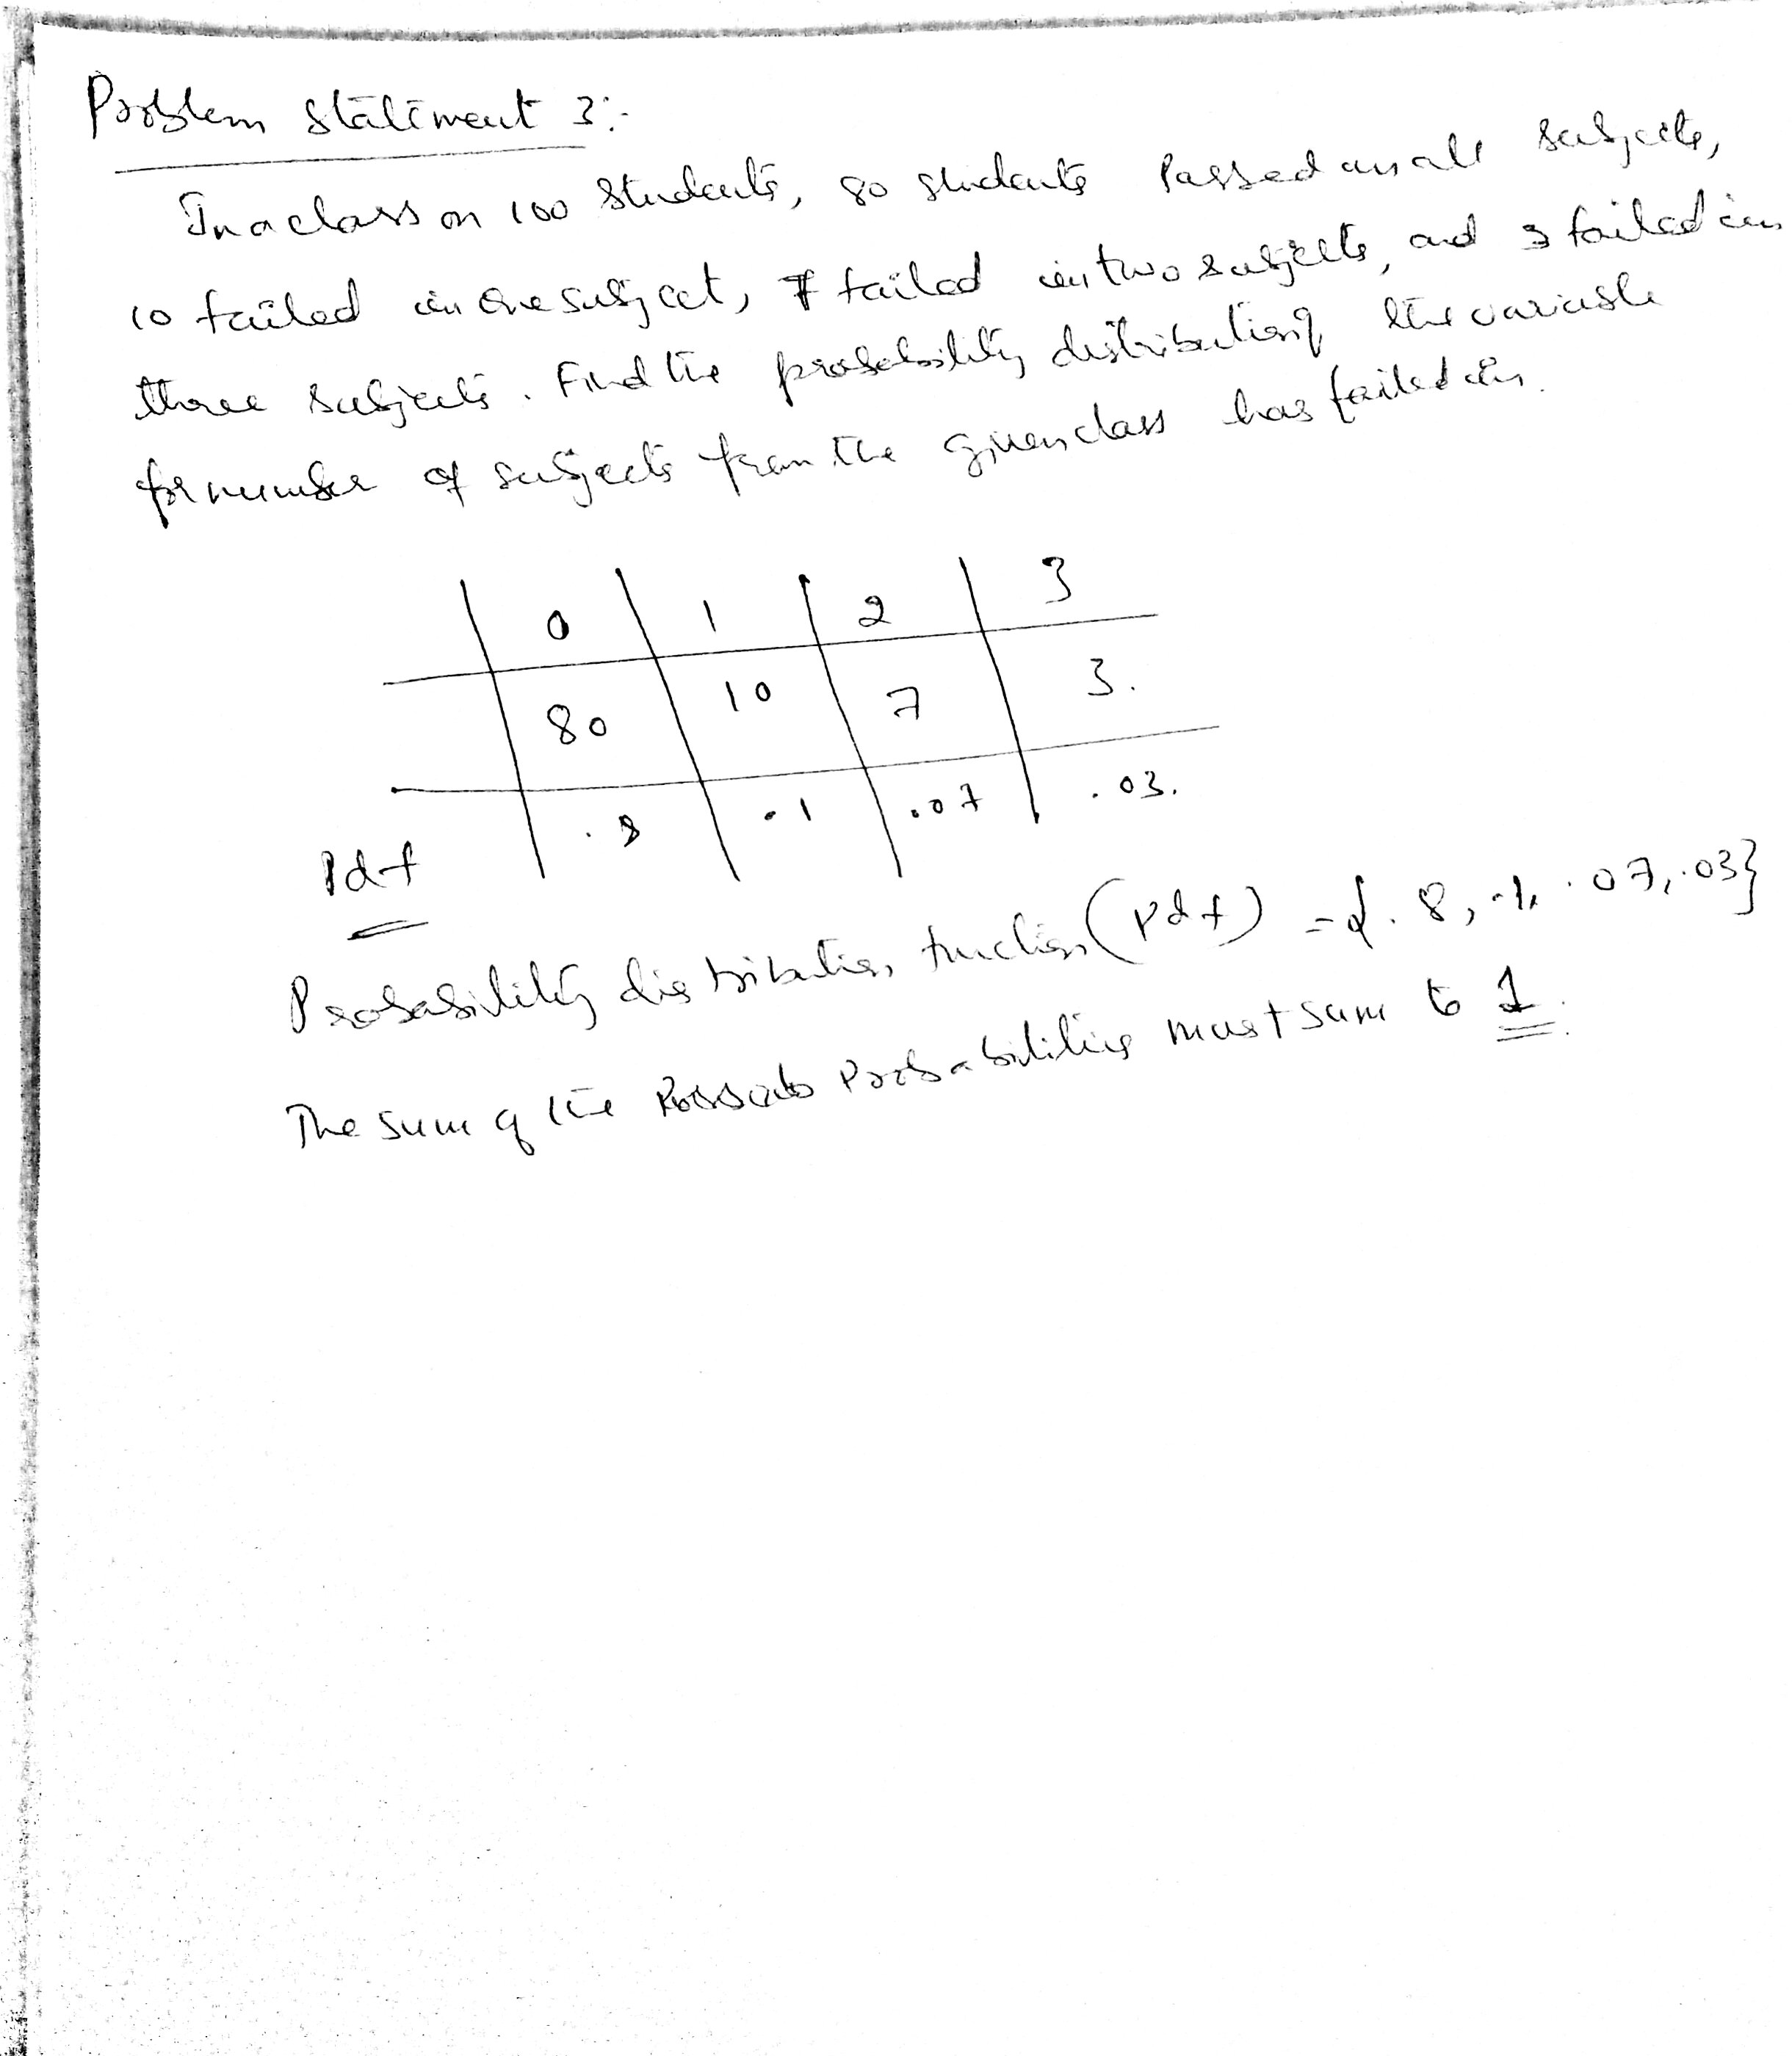 Problem Statement 3:-
In a class on 100 Students, 80 students Passed in all subjects,
10 failed in one subject, 7 failed in two subjects, and 3 failed in
three subjects. Find the probability distribution of the variable
for number of subjects from the given class has failed in.
0 1 2 3
80 10 7 3.
Pdf .8 .1 .07 .03.
Probability distribution function (Pdf) = {.8, .1, .07, .03}
The sum of the Probabilities must sum to 1.